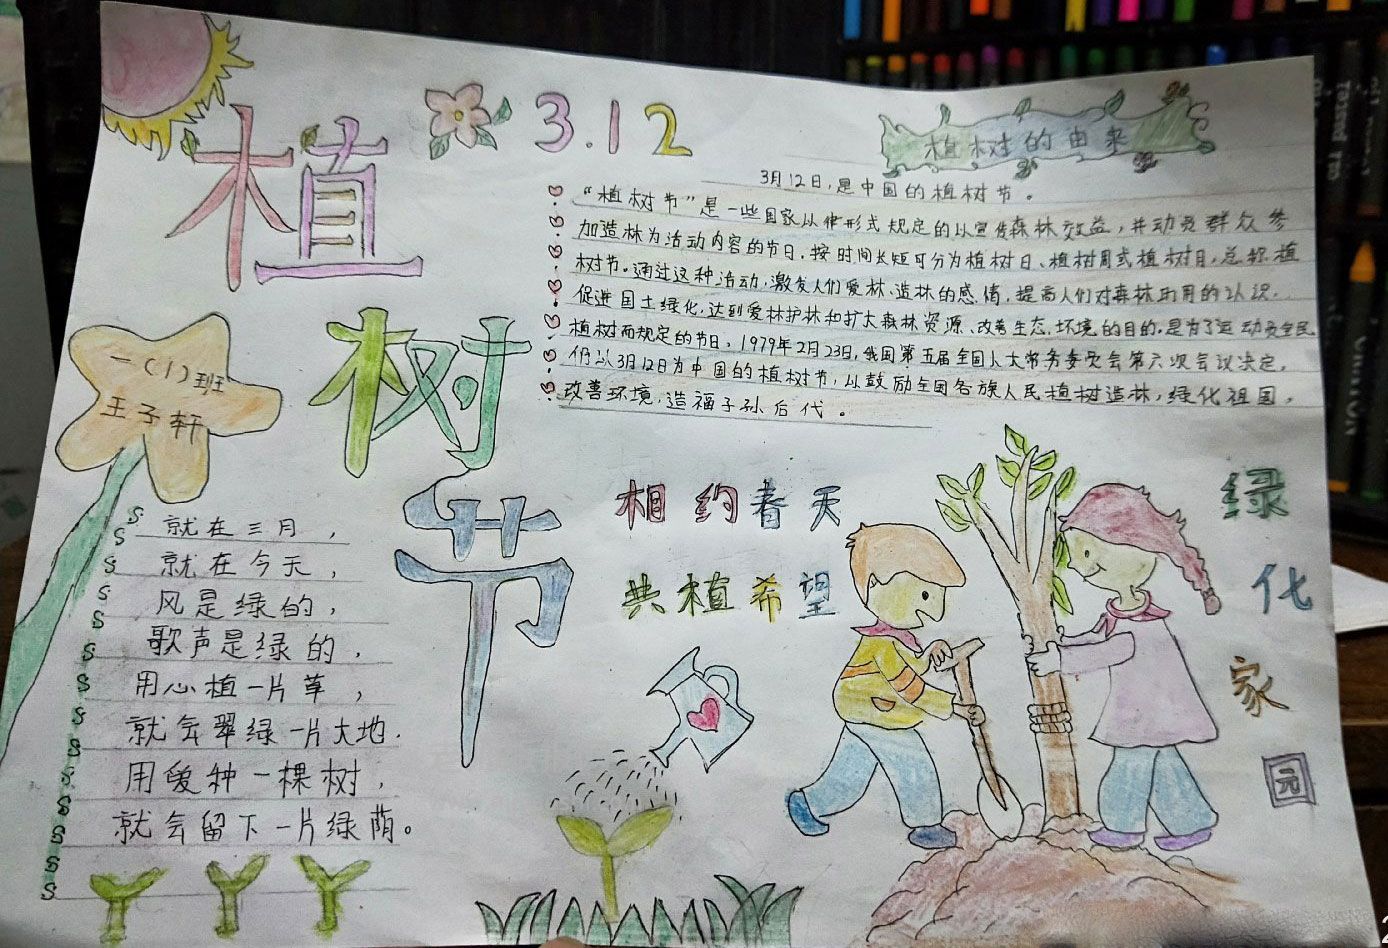 植树节
3.12
植树的由来
一(1)班
王子轩
3月12日，是中国的植树节。
“植树节”是一些国家以律形式规定的以宣传森林效益，并动员群众参
加造林为活动内容的节日。按时间长短可分为植树日、植树周或植树月，总称植
树节。通过这种活动，激发人们爱林、造林的感情，提高人们对森林功用的认识，
促进国土绿化，达到爱林护林和扩大森林资源、改善生态环境的目的。是为了运动员全民
植树而规定的节日，1979年2月23日，我国第五届全国人大常务委员会第六次会议决定，
仍以3月12日为中国的植树节，以鼓励全国各族人民植树造林，绿化祖国，
改善环境，造福子孙后代。
相约春天
共植希望
绿化家园
就在三月，
就在今天，
风是绿的，
歌声是绿的，
用心植一片草，
就会翠绿一片大地.
用爱种一棵树，
就会留下一片绿荫。